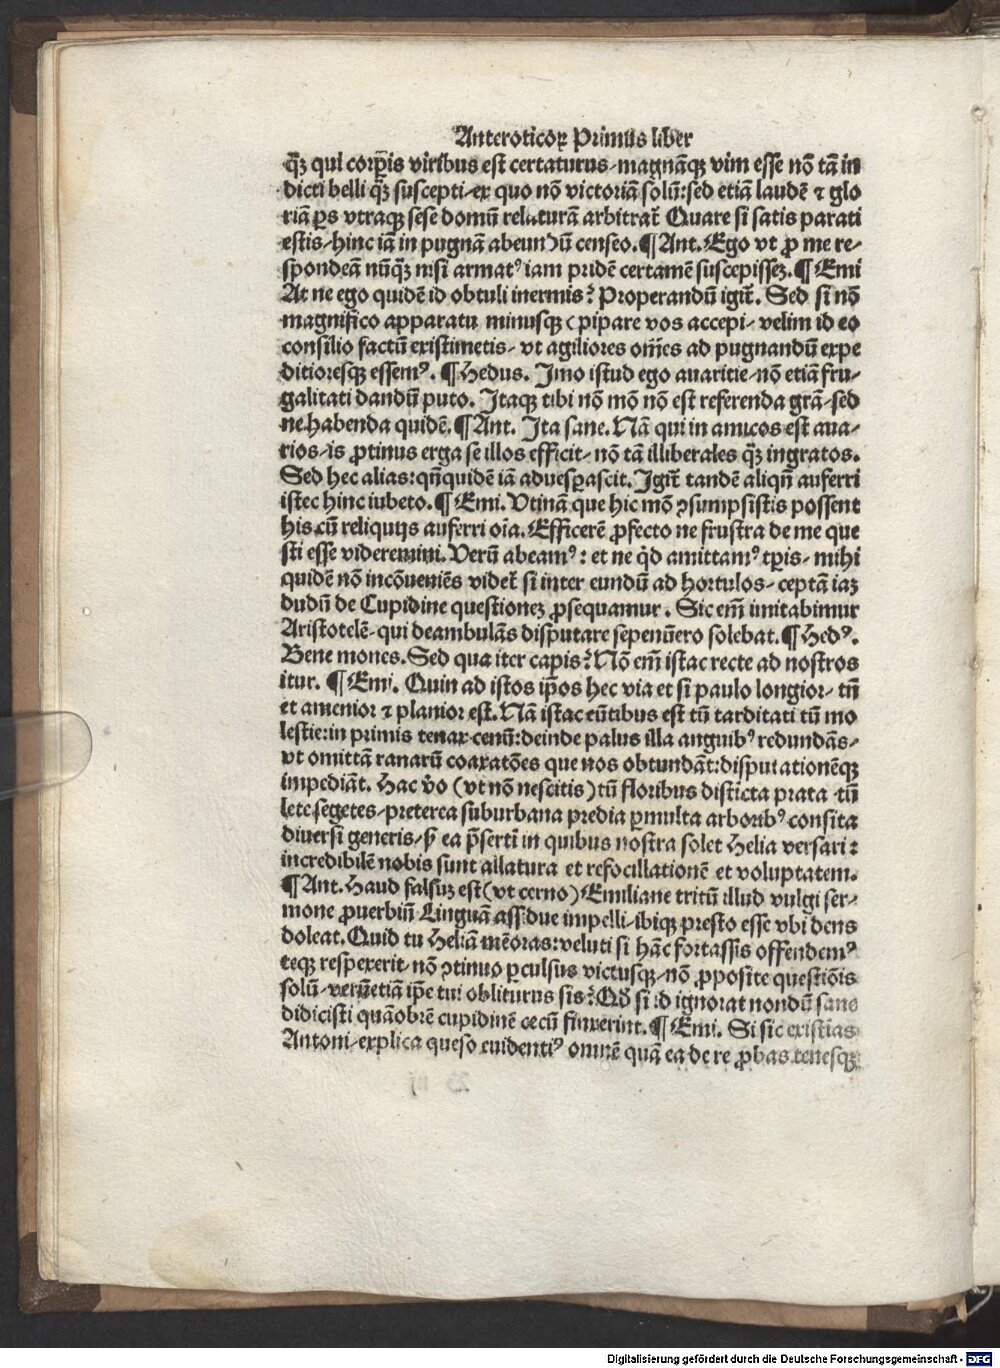 Anteroticoꝝ Primus liber
q̄ꝫ qui corꝑis viribus est certaturus⸗magnāqꝫ vim esse nō tā in
dicti belli q̄ꝫ suscepti⸗ex quo nō victoriā solū:sed etiā laudē ⁊ glo
riā ꝑs vtraqꝫ sese domū relaturā arbitrat᷑ Quare si satis parati
estis⸗hinc iā in pugnā abeundū censeo.¶Ant.Ego vt ꝓ me re⸗
spondeā nūq̄ꝫ nisi armatꝰ iam pridē certamē suscepisseꝫ.¶Emi
At ne ego quidē id obtuli inermis? Properandū igit᷑. Sed si nō
magnifico apparatu minusqꝫ (pipare vos accepi⸗ velim id eo
consilio factū existimetis⸗ vt agiliores om̄es ad pugnandū expe
ditioresqꝫ essemꝰ. ¶Hedus. Imo istud ego auaritie⸗nō etiā fru⸗
galitati dandū puto. Itaqꝫ tibi nō mō nō est referenda grā⸗sed
ne habenda quidē.¶Ant. Ita sane.Nā qui in amicos est aua⸗
rios⸗is ꝓtinus erga se illos efficit⸗nō tā illiberales q̄ꝫ ingratos.
Sed hec alias:qn̄quidē iā aduesꝑascit.Igit᷑ tandē aliqn̄ auferri
istec hinc iubeto.¶Emi.Vtinā que hic mō ꝯsumpsistis possent
his cū reliquijs auferri oīa.Efficerē ꝓfecto ne frustra de me que
sti esse videremini.Verū abeamꝰ: et ne q̇d amittamꝰ tꝑis⸗mihi
quidē nō incōueniēs videt᷑ si inter eundū ad hortulos⸗ceptā iaꝫ
dudū de Cupidine questioneꝫ ꝓsequamur. Sic em̄ imitabimur
Aristotelē⸗qui deambulās disputare sepenūero solebat.¶Hedꝰ.
Bene mones.Sed qua iter capis? Nō em̄ istac recte ad nostros
itur. ¶Emi. Quin ad istos ip̄os hec via et si paulo longior⸗ tn̄
et amenior ⁊ planior est.Nā istac eūtibus est tū tarditati tū mo
lestie:in primis tenax cenū:deinde palus illa anguibꝰ redundās⸗
vt omittā ranarū coaxatōes que nos obtundāt:disputationēqꝫ
impediāt. Hac v̄o (vt nō nescitis)tū floribus disticta prata⸗tū
lete segetes⸗preterea suburbana predia ꝑmulta arboribꝰ consita
diuersi generis⸗p̄ ea p̄sertī in quibus nostra solet Helia versari:
incredibilē nobis sunt allatura et refocillationē et voluptatem.
¶Ant.Haud falsuꝫ est(vt cerno)Emiliane tritū illud vulgi ser⸗
mone ꝓuerbiū Linguā assidue impelli⸗ibiqꝫ presto esse vbi dens
doleat.Quid tu Heliā mēoras:veluti si hāc fortassis offendemꝰ
teqꝫ respexerit⸗nō ꝯtinuo ꝑculsus victusqꝫ⸗nō ꝓposite questiōis
solū⸗verūetiā ip̄e tui obliturus sis?Qd̄ si id ignorat nondū sane
didicisti quāobrē cupidinē cecū finxerint.¶Emi. Si sic existīas
Antoni⸗explica queso euidentiꝰ omnē quā ea de re ꝓbas tenesqꝫ